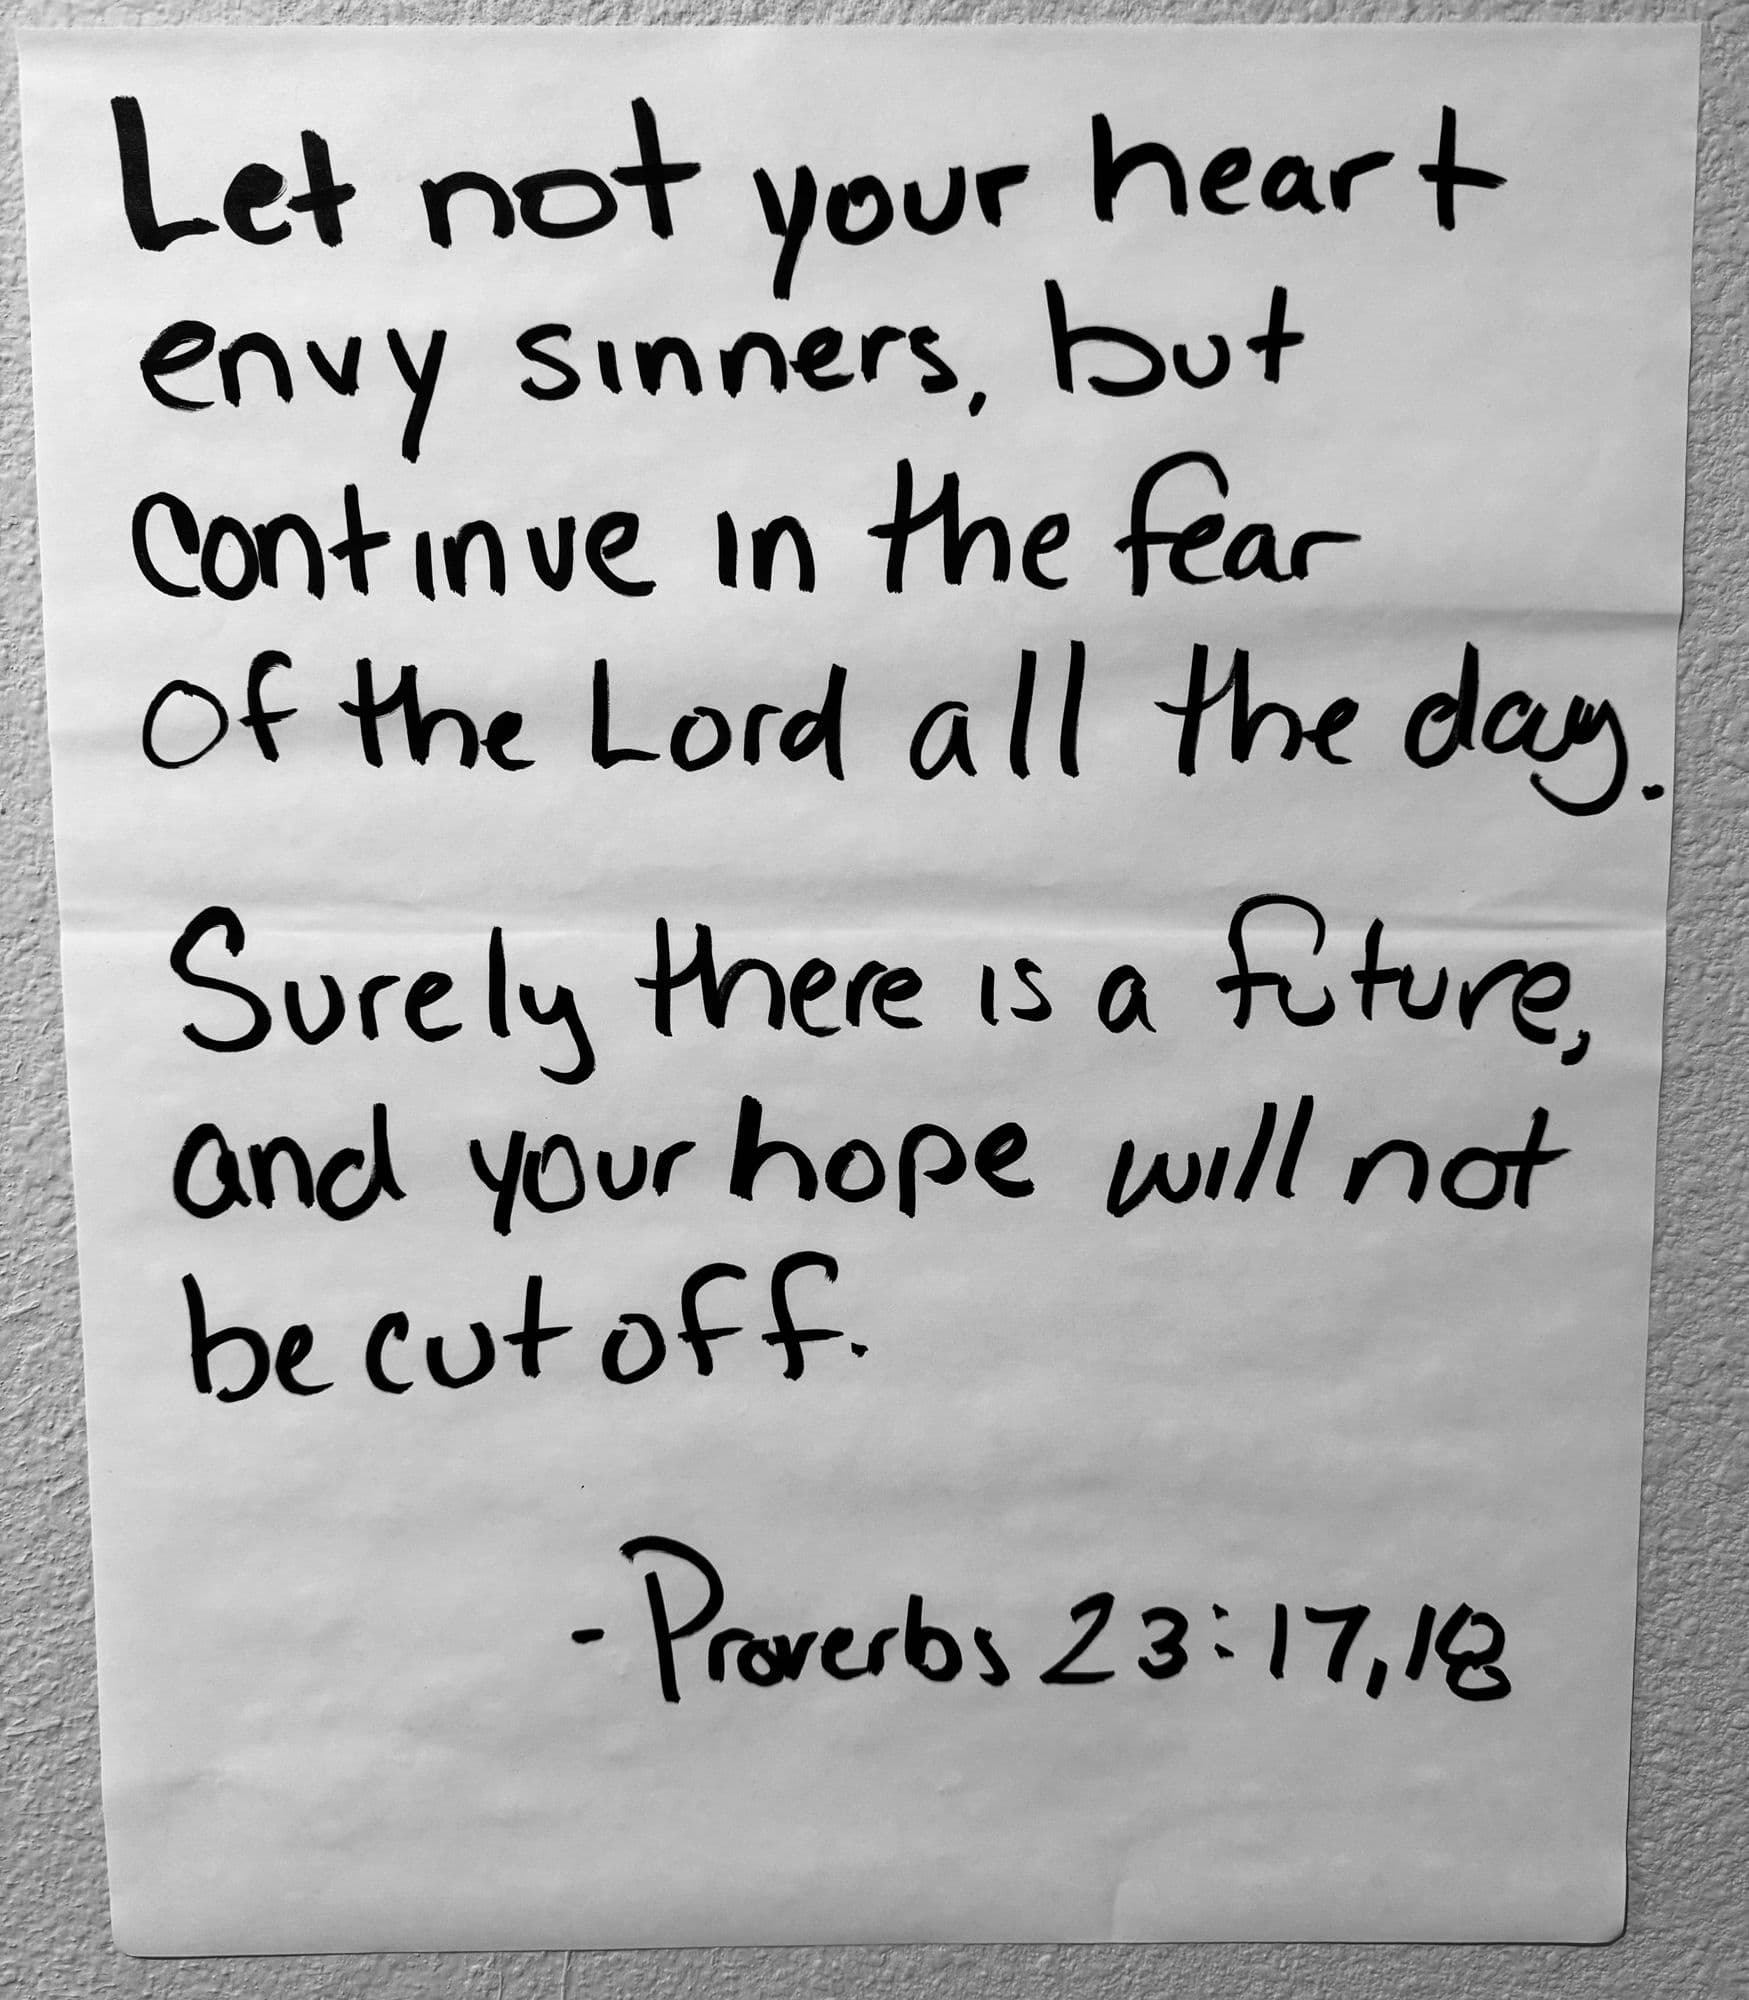 Let not your heart
envy sinners, but
continue in the fear
of the Lord all the day.
Surely there is a future,
and your hope will not
be cut off.
- Proverbs 23:17,18